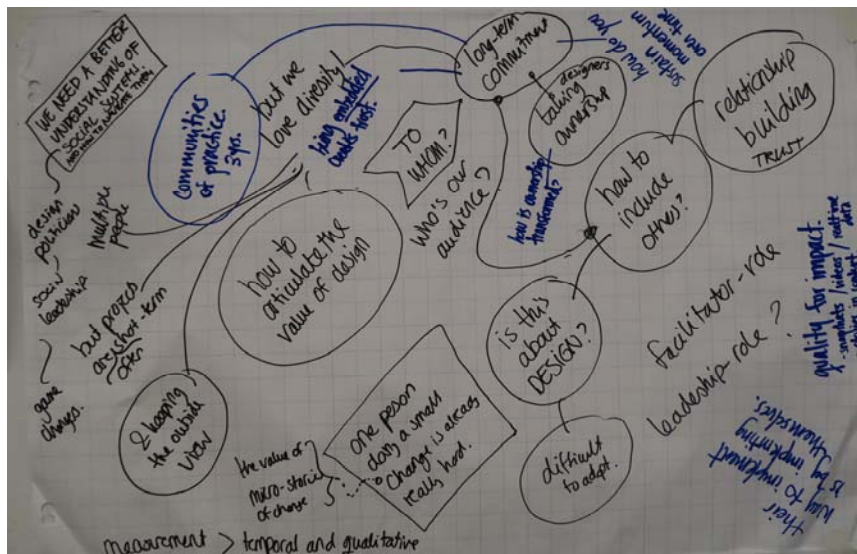 WE NEED A BETTER
UNDERSTANDING OF
SOCIAL SYSTEMS.
AND HOW TO NAVIGATE THEM.
design
politician
social
leadership
game
changes.
Communities
of practice.
3 yrs.
but we
love diversity!
being embedded
creates trust.
multiple
people
but projects
are short-term
often
& keeping
the outside
view
how to
articulate the
value of design
TO
WHOM?
who's our
audience?
long-term
commitment
how do you
sustain
momentum
over time
designers
taking
ownership
how is ownership
transformed?
relationship
building
TRUST
how to
include
others?
is this
about
DESIGN?
difficult
to adopt.
facilitator-role
leadership-role?
quality for impact.
snapshots / videos / realtime
data
in context
their
way to implement
is by implementing
themselves.
one person
doing a small
change is already
really hard.
the value of
micro-stories
of change
measurement > temporal and qualitative